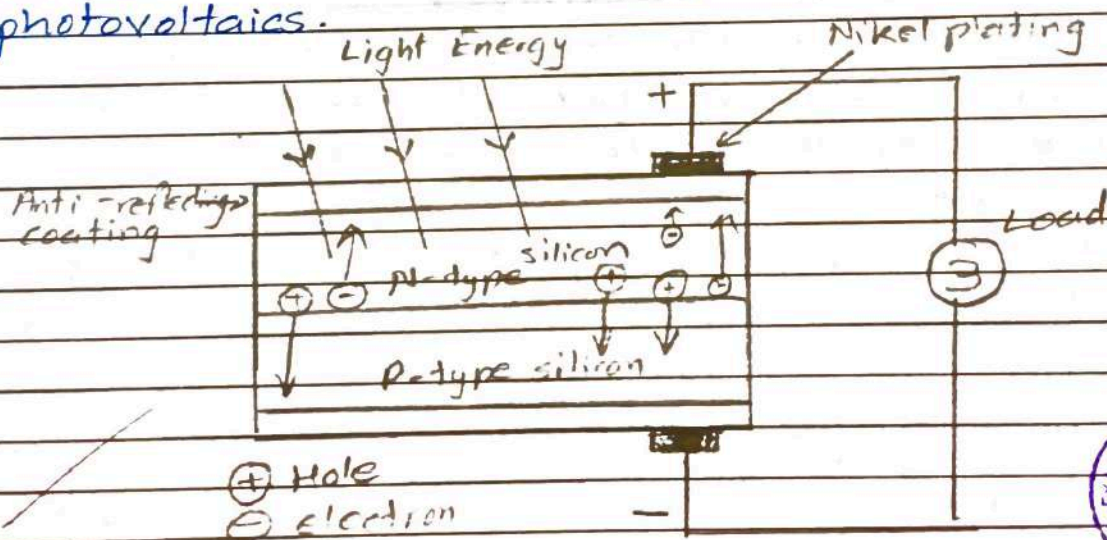 photovoltaics.
Light Energy
Nikel plating
+
Anti-reflecting
coating
Load
silicon
N-type
P-type silicon
+ Hole
- electron
-